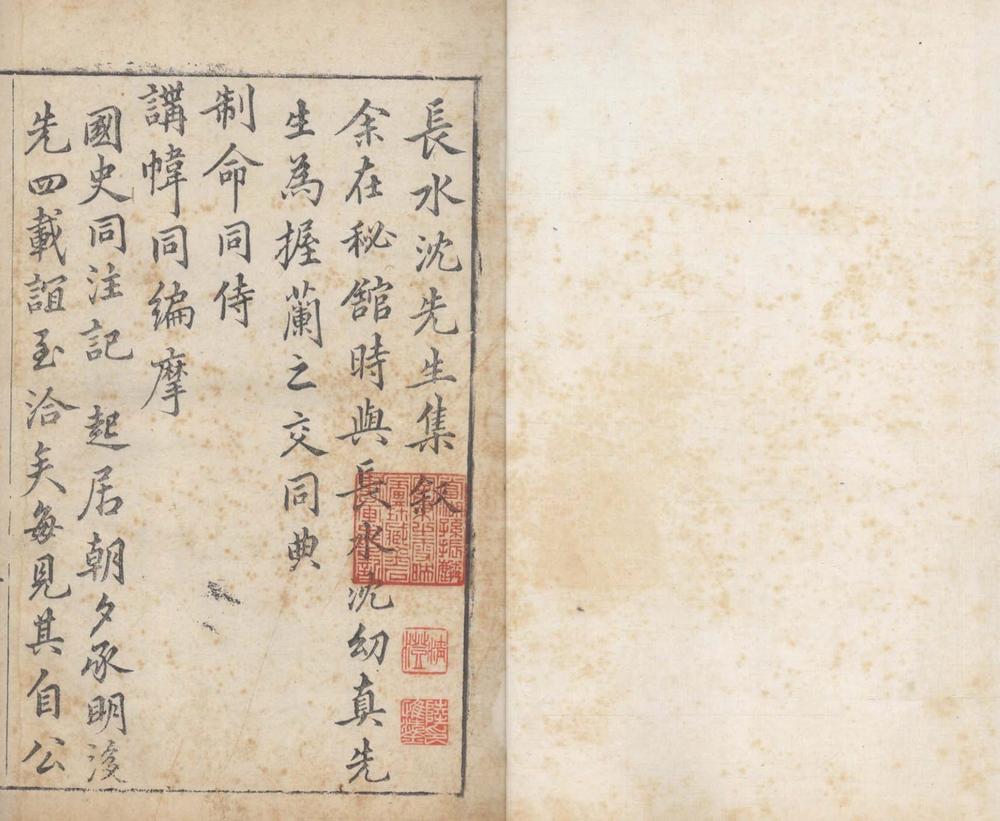 長水沈先生集敘
余在秘舘時與長水沈幼真先
生為握蘭之交同典
制命同侍
講幃同編摩
國史同注記 起居朝夕承明後
先四載誼至洽矣每見其自公